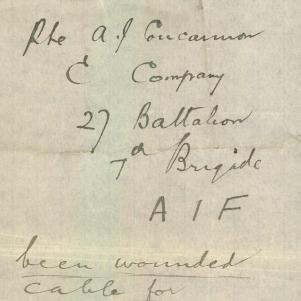 Pte A. J Concannon
C Company
27 Battalion
7th Brigide
A I F
been wounded
cable for